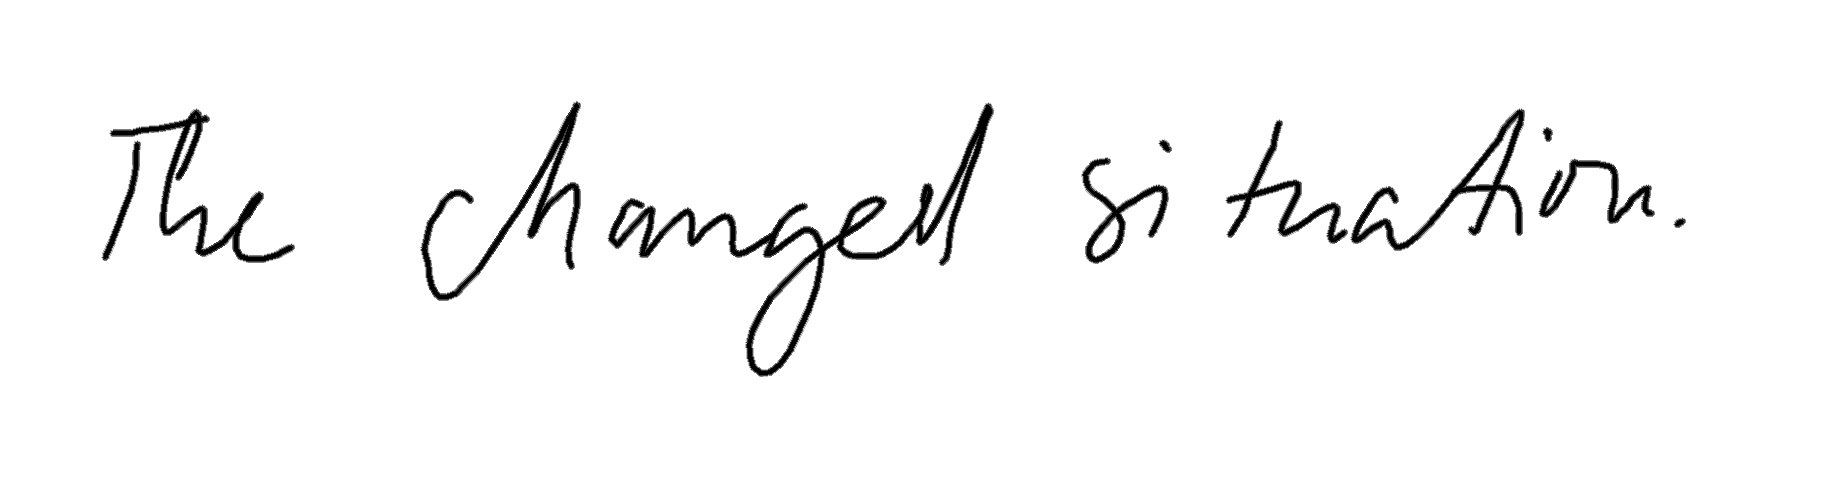 The changed situation.